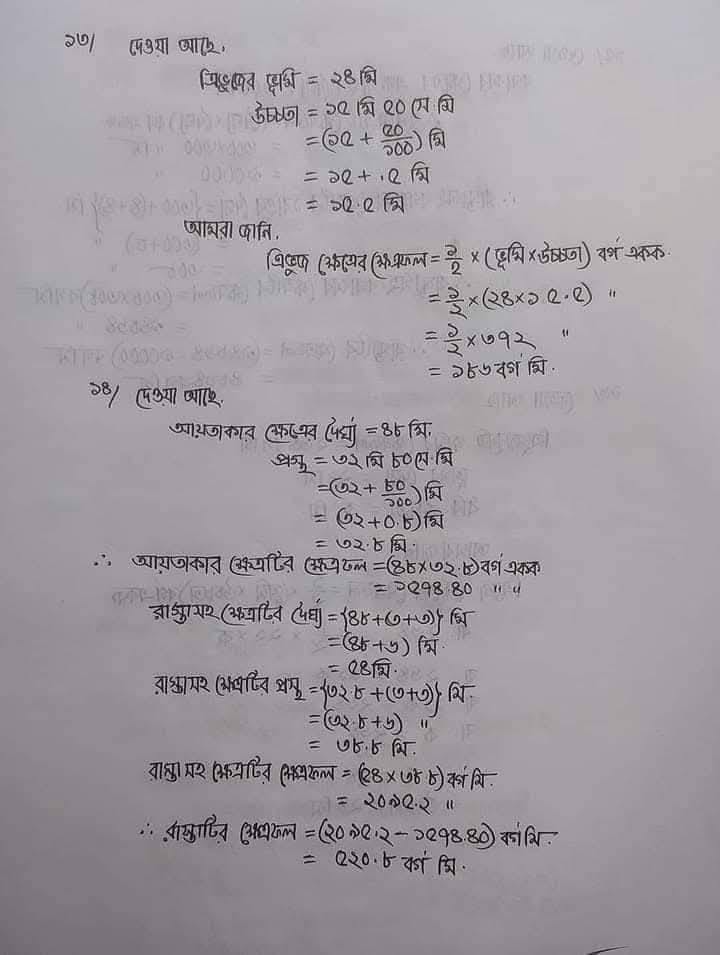 ১৩/ দেওয়া আছে,
ত্রিভুজের ভূমি = ২৪ মি
উচ্চতা = ১৫ মি ৫০ সে.মি
=(১৫ + ৫০/১০০) মি
= ১৫ + .৫ মি
= ১৫.৫ মি
আমরা জানি,
ত্রিভুজ ক্ষেত্রের ক্ষেত্রফল = ১/২ × (ভূমি × উচ্চতা) বর্গ একক.
= ১/২ × (২৪ × ১৫.৫) "
= ১/২ × ৩৭২ "
= ১৮৬ বর্গ মি.
১৪/ দেওয়া আছে,
আয়তাকার ক্ষেত্রের দৈর্ঘ্য = ৪৮ মি.
প্রস্থ = ৩২ মি ৮০ সে.মি
=(৩২ + ৮০/১০০) মি
= (৩২+০.৮) মি
= ৩২.৮ মি.
∴ আয়তাকার ক্ষেত্রটির ক্ষেত্রফল = (৪৮×৩২.৮) বর্গ একক
= ১৫৭৪.৪০ " "
রাস্তাসহ ক্ষেত্রটির দৈর্ঘ্য = {৪৮+(৩+৩)} মি
=(৪৮+৬) মি.
= ৫৪ মি.
রাস্তাসহ ক্ষেত্রটির প্রস্থ = {৩২.৮+(৩+৩)} মি.
=(৩২.৮+৬) "
= ৩৮.৮ মি.
রাস্তাসহ ক্ষেত্রটির ক্ষেত্রফল = (৫৪ × ৩৮.৮) বর্গ মি.
= ২০৯৫.২ "
∴ রাস্তাটির ক্ষেত্রফল = (২০৯৫.২ – ১৫৭৪.৪০) বর্গ মি.
= ৫২০.৮ বর্গ মি.